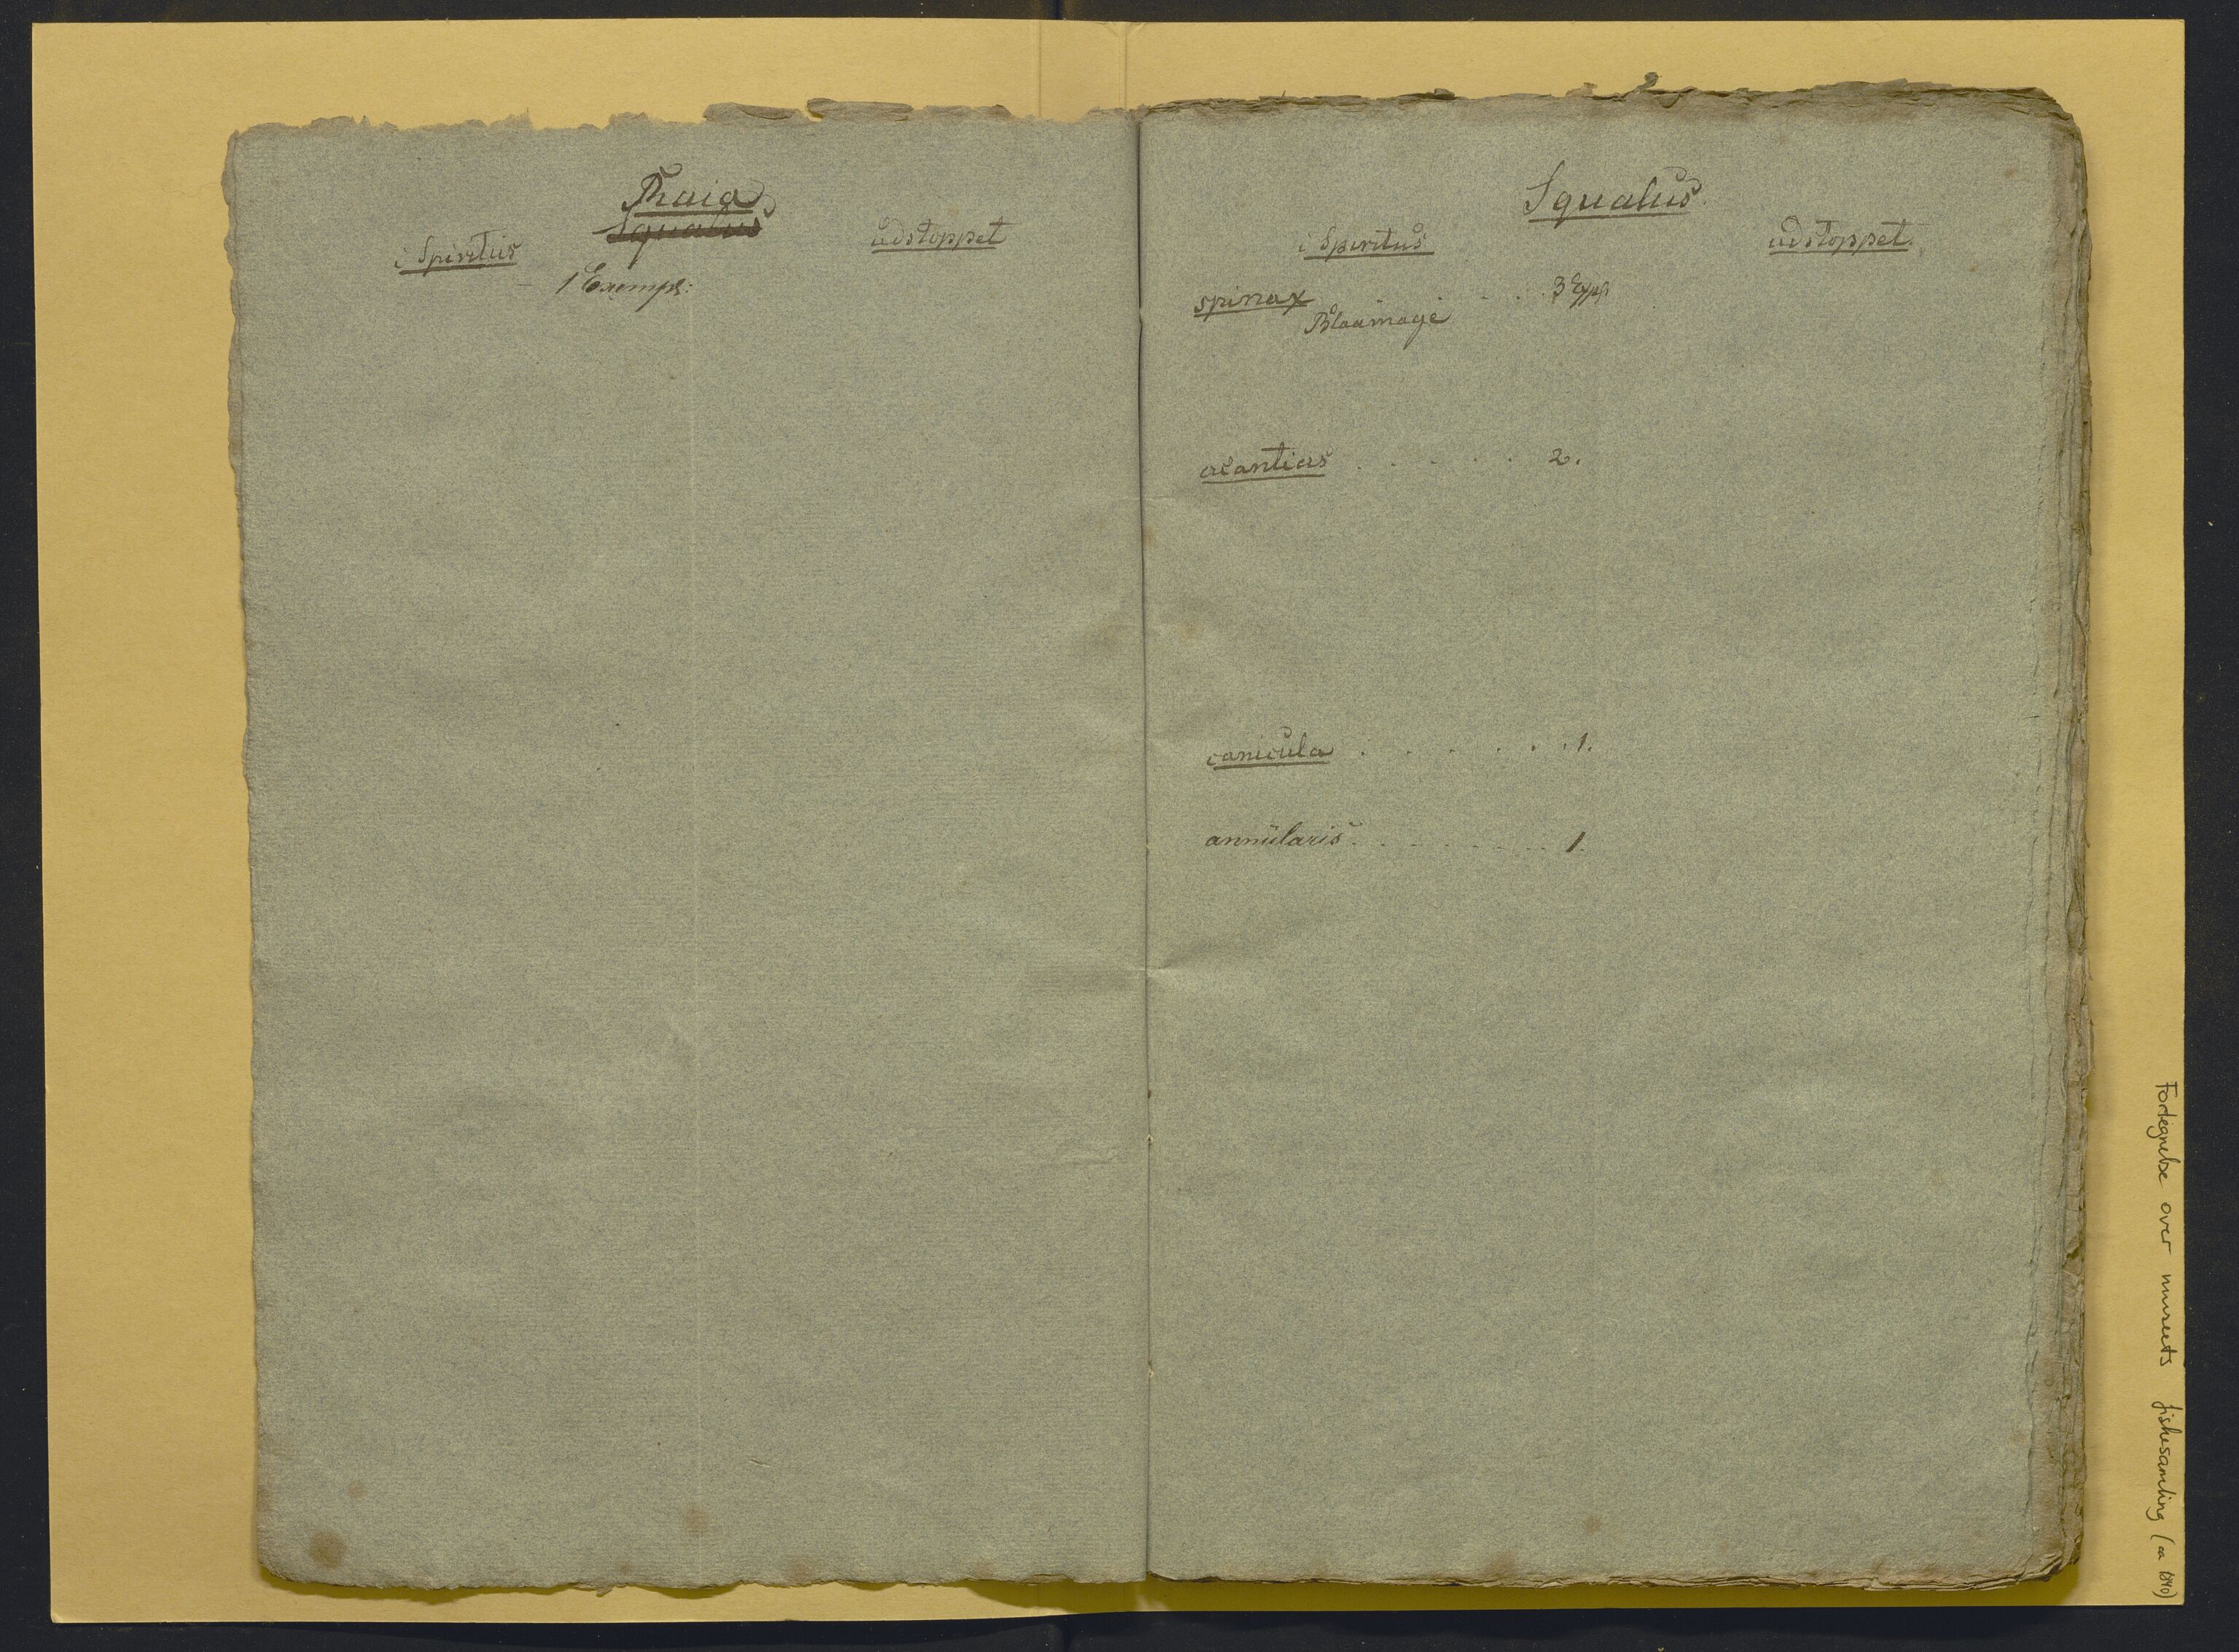 Rhaia
Squalus
i Spiritus
udstoppet
1 Exempl:
Squalus.
i Spiritus
udstoppet.
spinax . . . . 3 Expl
Blaamage
acantias . . . . . 2.
canicula . . . . . . 1.
annularis . . . . . . . . 1.
Fortegnelse over museets fiskesamling (ca 1840)